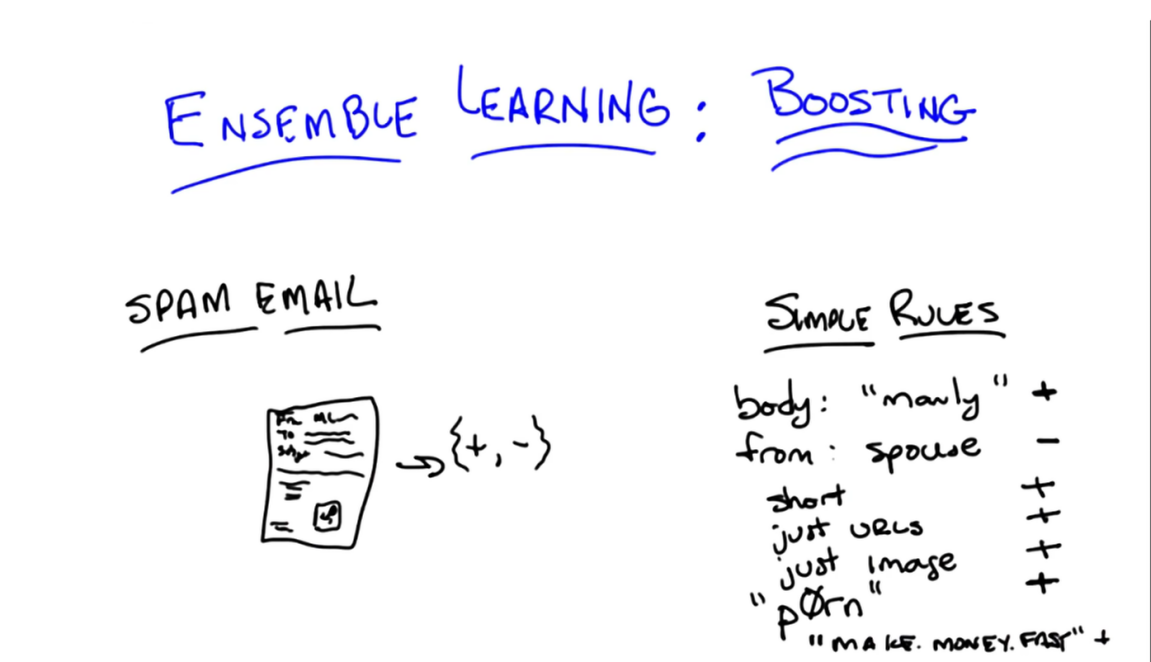 ENSEMBLE LEARNING: BOOSTING
SPAM EMAIL
To
→ {+, -}
SIMPLE RULES
body: "manly" +
from: spouse -
short +
just URLS +
just image +
"pØrn" +
"MAKE.MONEY.FAST" +